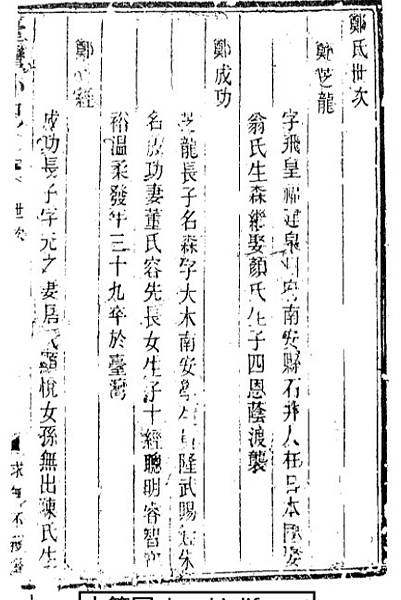 鄭氏世次
鄭芝龍
字飛皇福建泉州府南安縣石井人在日本娶
翁氏生森繼娶顏氏生子四恩蔭渡襲
鄭成功
芝龍長子名森字大木南安學生隆武賜姓朱
名成功妻董氏容先長女生子十經聰明睿智
裕溫柔發年三十九卒於臺灣
鄭經
成功長子字元之妻唐氏顯悅女孫無出陳氏生
世次
求無不獲齋